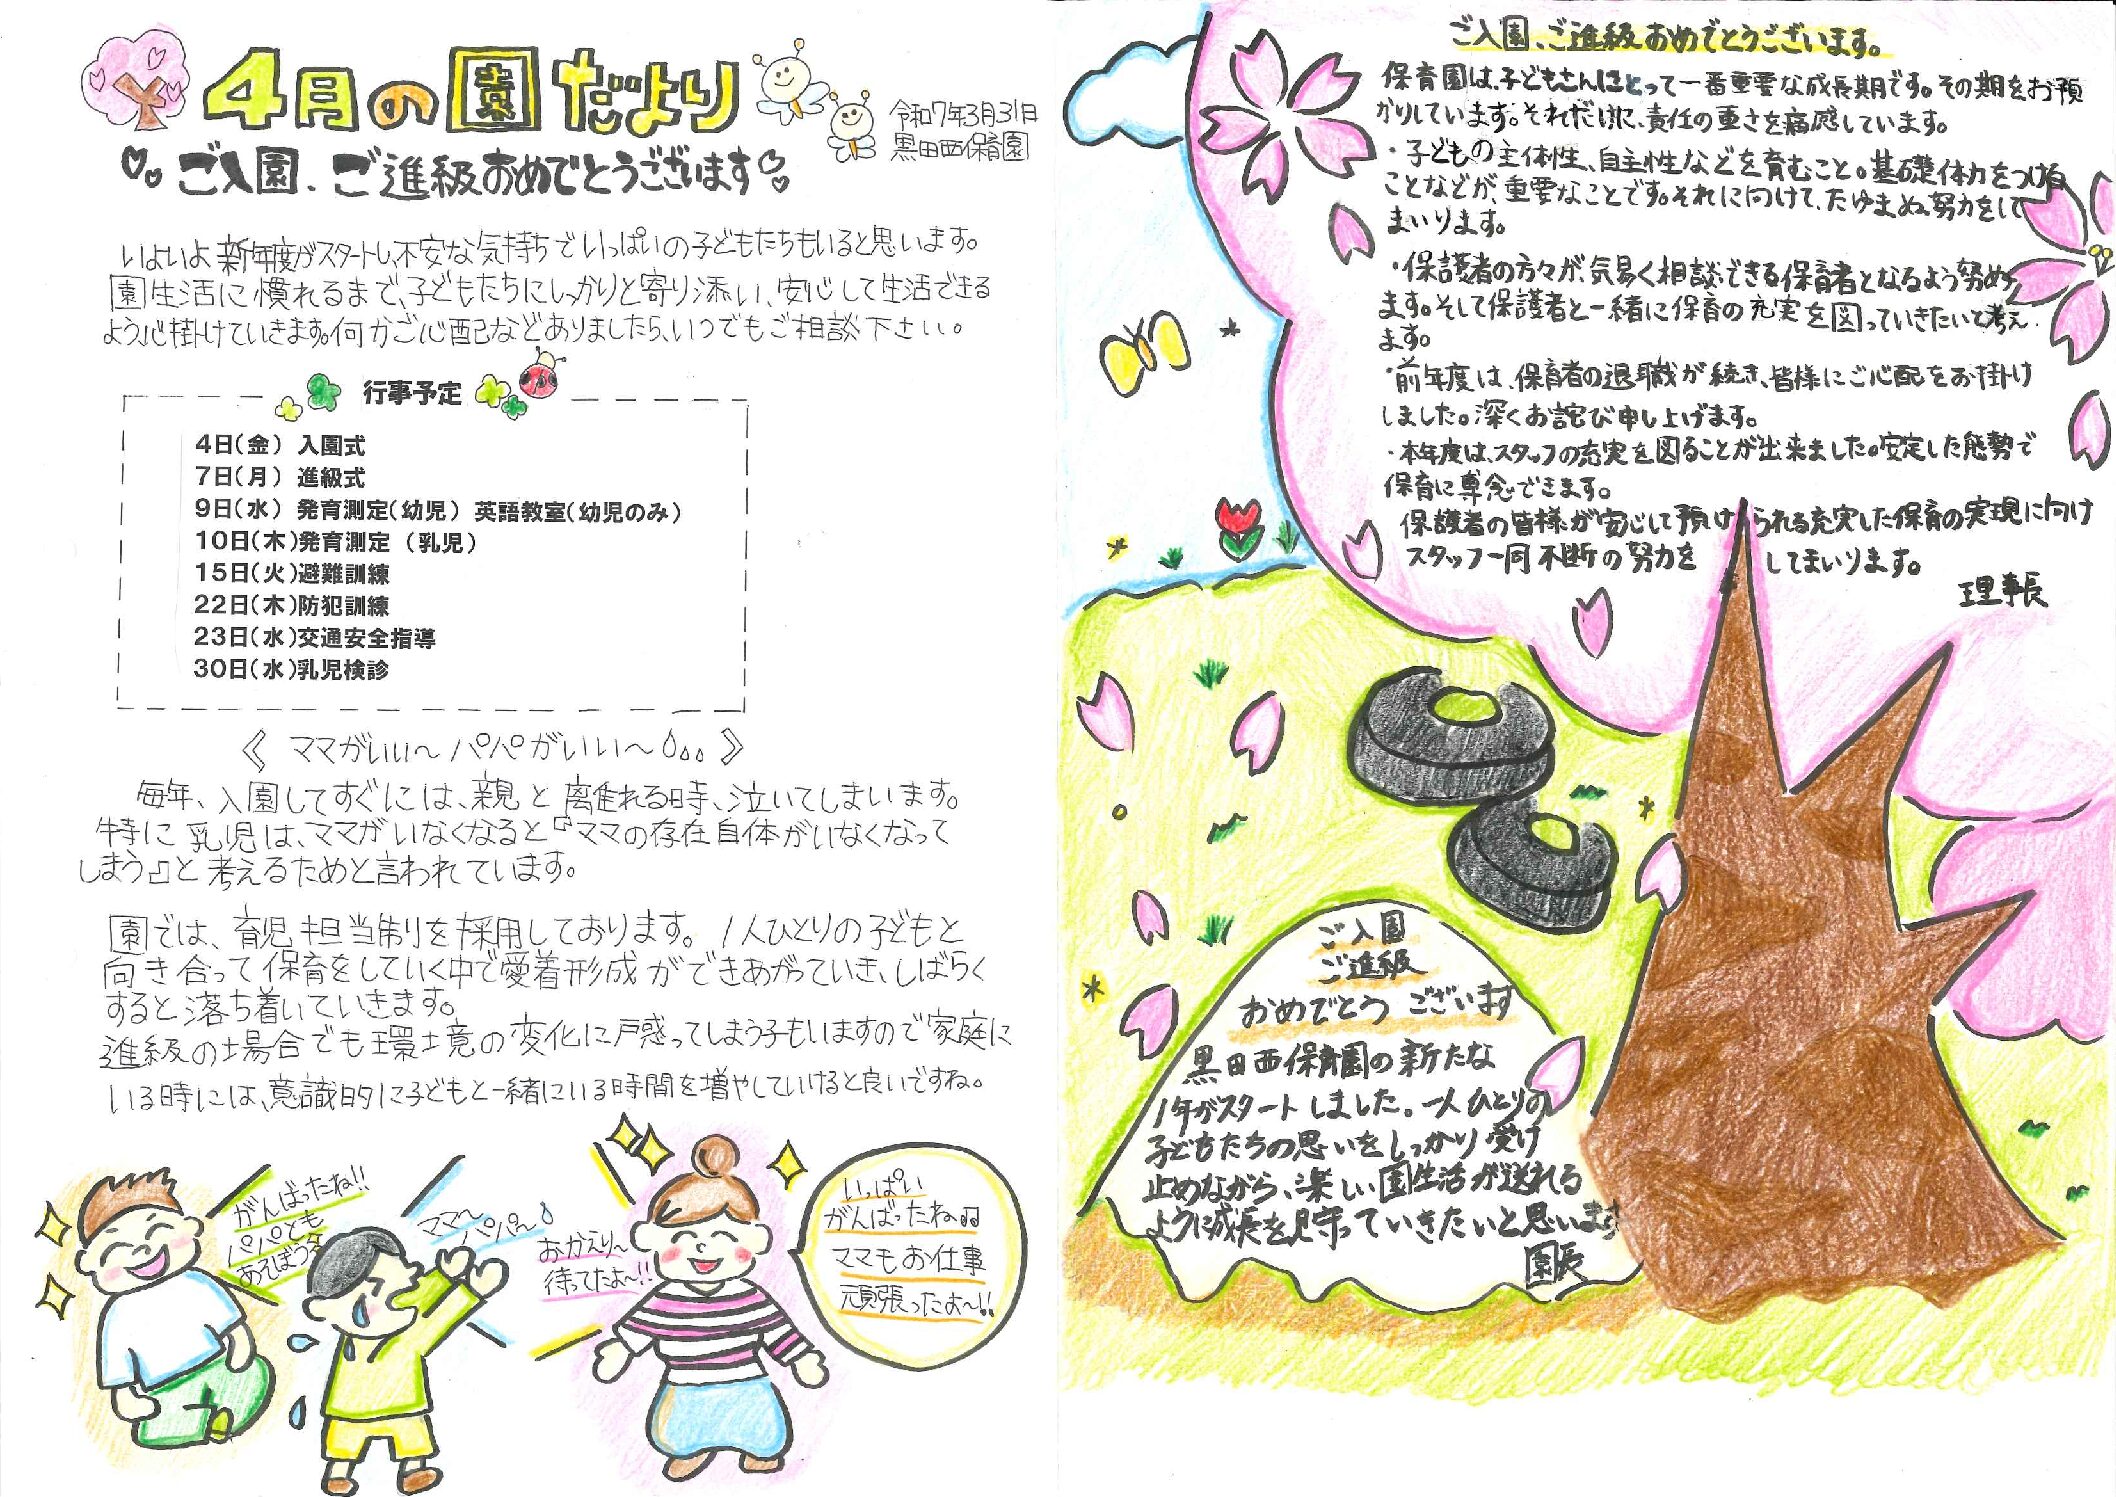 4月の園だより
令和7年3月31日
黒田西保育園
ご入園、ご進級おめでとうございます
いよいよ新年度がスタートし、不安な気持ちでいっぱいの子どもたちもいると思います。
園生活に慣れるまで、子どもたちにしっかりと寄り添い、安心して生活できる
よう心掛けていきます。何かご心配などありましたら、いつでもご相談下さい。
行事予定
4日(金) 入園式
7日(月) 進級式
9日(水) 発育測定(幼児) 英語教室(幼児のみ)
10日(木)発育測定 (乳児)
15日(火)避難訓練
22日(木)防犯訓練
23日(水)交通安全指導
30日(水)乳児検診
《 ママがいい〜 パパがいい〜 》
毎年、入園してすぐには、親と離れる時、泣いてしまいます。
特に乳児は、ママがいなくなると『ママの存在自体がいなくなって
しまう』と考えるためと言われています。
園では、育児担当制を採用しております。1人ひとりの子どもと
向き合って保育をしていく中で愛着形成ができあがっていき、しばらく
すると落ち着いていきます。
進級の場合でも環境の変化に戸惑ってしまう子もいますので家庭に
いる時には、意識的に子どもと一緒にいる時間を増やしていけると良いですね。
がんばったね!!
パパとも
あそぼうね
ママ〜
パパ〜
おかえり〜
待ってたよ〜!!
いっぱい
がんばったね♫
ママもお仕事
頑張ったよ〜!!
ご入園、ご進級おめでとうございます。
保育園は、子どもさんにとって一番重要な成長期です。その期をお預
かりしています。それだけに、責任の重さを痛感しています。
・子どもの主体性、自主性などを育むこと。基礎体力をつける
ことなどが、重要なことです。それに向けて、たゆまぬ努力をして
まいります。
・保護者の方々が、気易く相談できる保育者となるよう努め
ます。そして保護者と一緒に保育の充実を図っていきたいと考え
ます。
・前年度は、保育者の退職が続き、皆様にご心配をお掛け
しました。深くお詫び申し上げます。
・本年度は、スタッフの充実を図ることが出来ました。安定した態勢で
保育に専念できます。
保護者の皆様が安心して預けられる充実した保育の実現に向け
スタッフ一同不断の努力を してまいります。
理事長
ご入園
ご進級
おめでとう ございます
黒田西保育園の新たな
1年がスタートしました。一人ひとりの
子どもたちの思いをしっかり受け
止めながら、楽しい園生活が送れる
ように成長を見守っていきたいと思います
園長